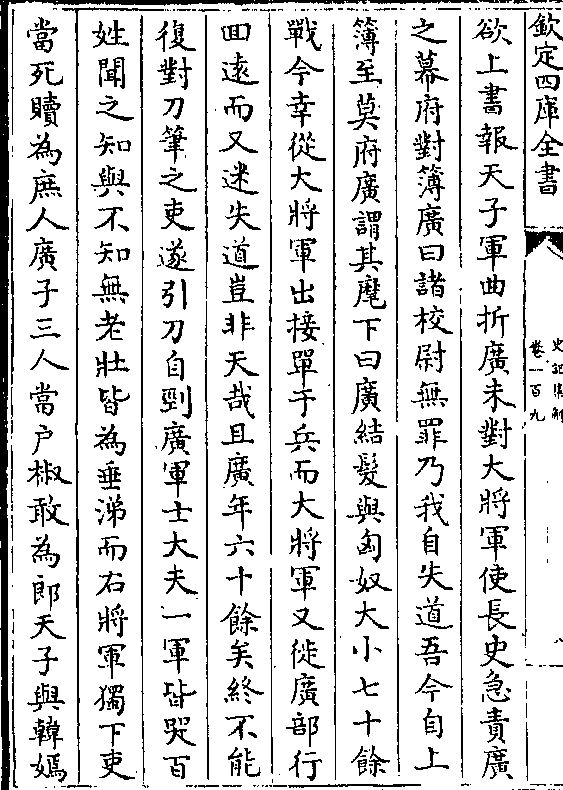 欽定四庫全書
史記集解
卷一百九
八
欲上書報天子軍曲折廣未對大將軍使長史急責廣
之幕府對簿廣曰諸校尉無罪乃我自失道吾今自上
簿至莫府廣謂其麾下曰廣結髮與匈奴大小七十餘
戰今幸從大將軍出接單于兵而大將軍又徙廣部行
回遠而又迷失道豈非天哉且廣年六十餘矣終不能
復對刀筆之吏遂引刀自剄廣軍士大夫一軍皆哭百
姓聞之知與不知無老壯皆為垂涕而右將軍獨下吏
當死贖為庶人廣子三人當户椒敢為郎天子與韓嫣